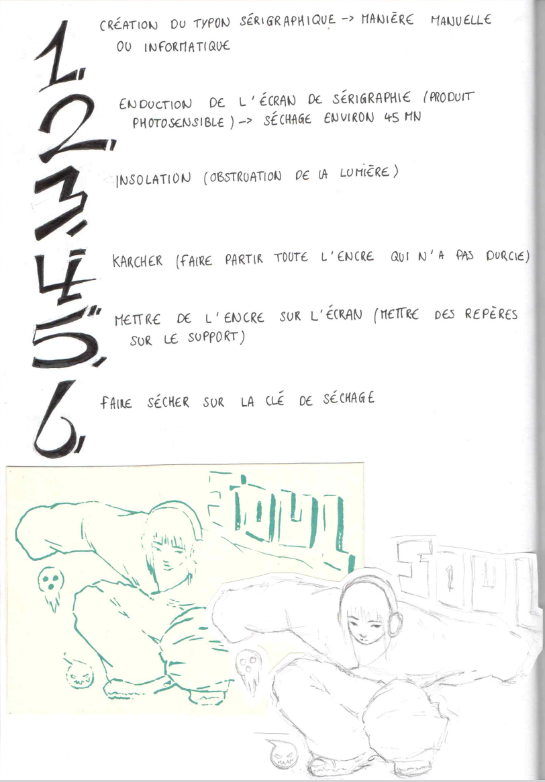 1. CRÉATION DU TYPON SÉRIGRAPHIQUE -> MANIÈRE MANUELLE
OU INFORMATIQUE
2. ENDUCTION DE L'ÉCRAN DE SÉRIGRAPHIE (PRODUIT
PHOTOSENSIBLE) -> SÉCHAGE ENVIRON 45 MN
3. INSOLATION (OBSTRUATION DE LA LUMIÈRE)
4. KARCHER (FAIRE PARTIR TOUTE L'ENCRE QUI N'A PAS DURCIE)
5. METTRE DE L'ENCRE SUR L'ÉCRAN (METTRE DES REPÈRES
SUR LE SUPPORT)
6. FAIRE SÉCHER SUR LA CLÉ DE SÉCHAGE
SOUL
SOUL